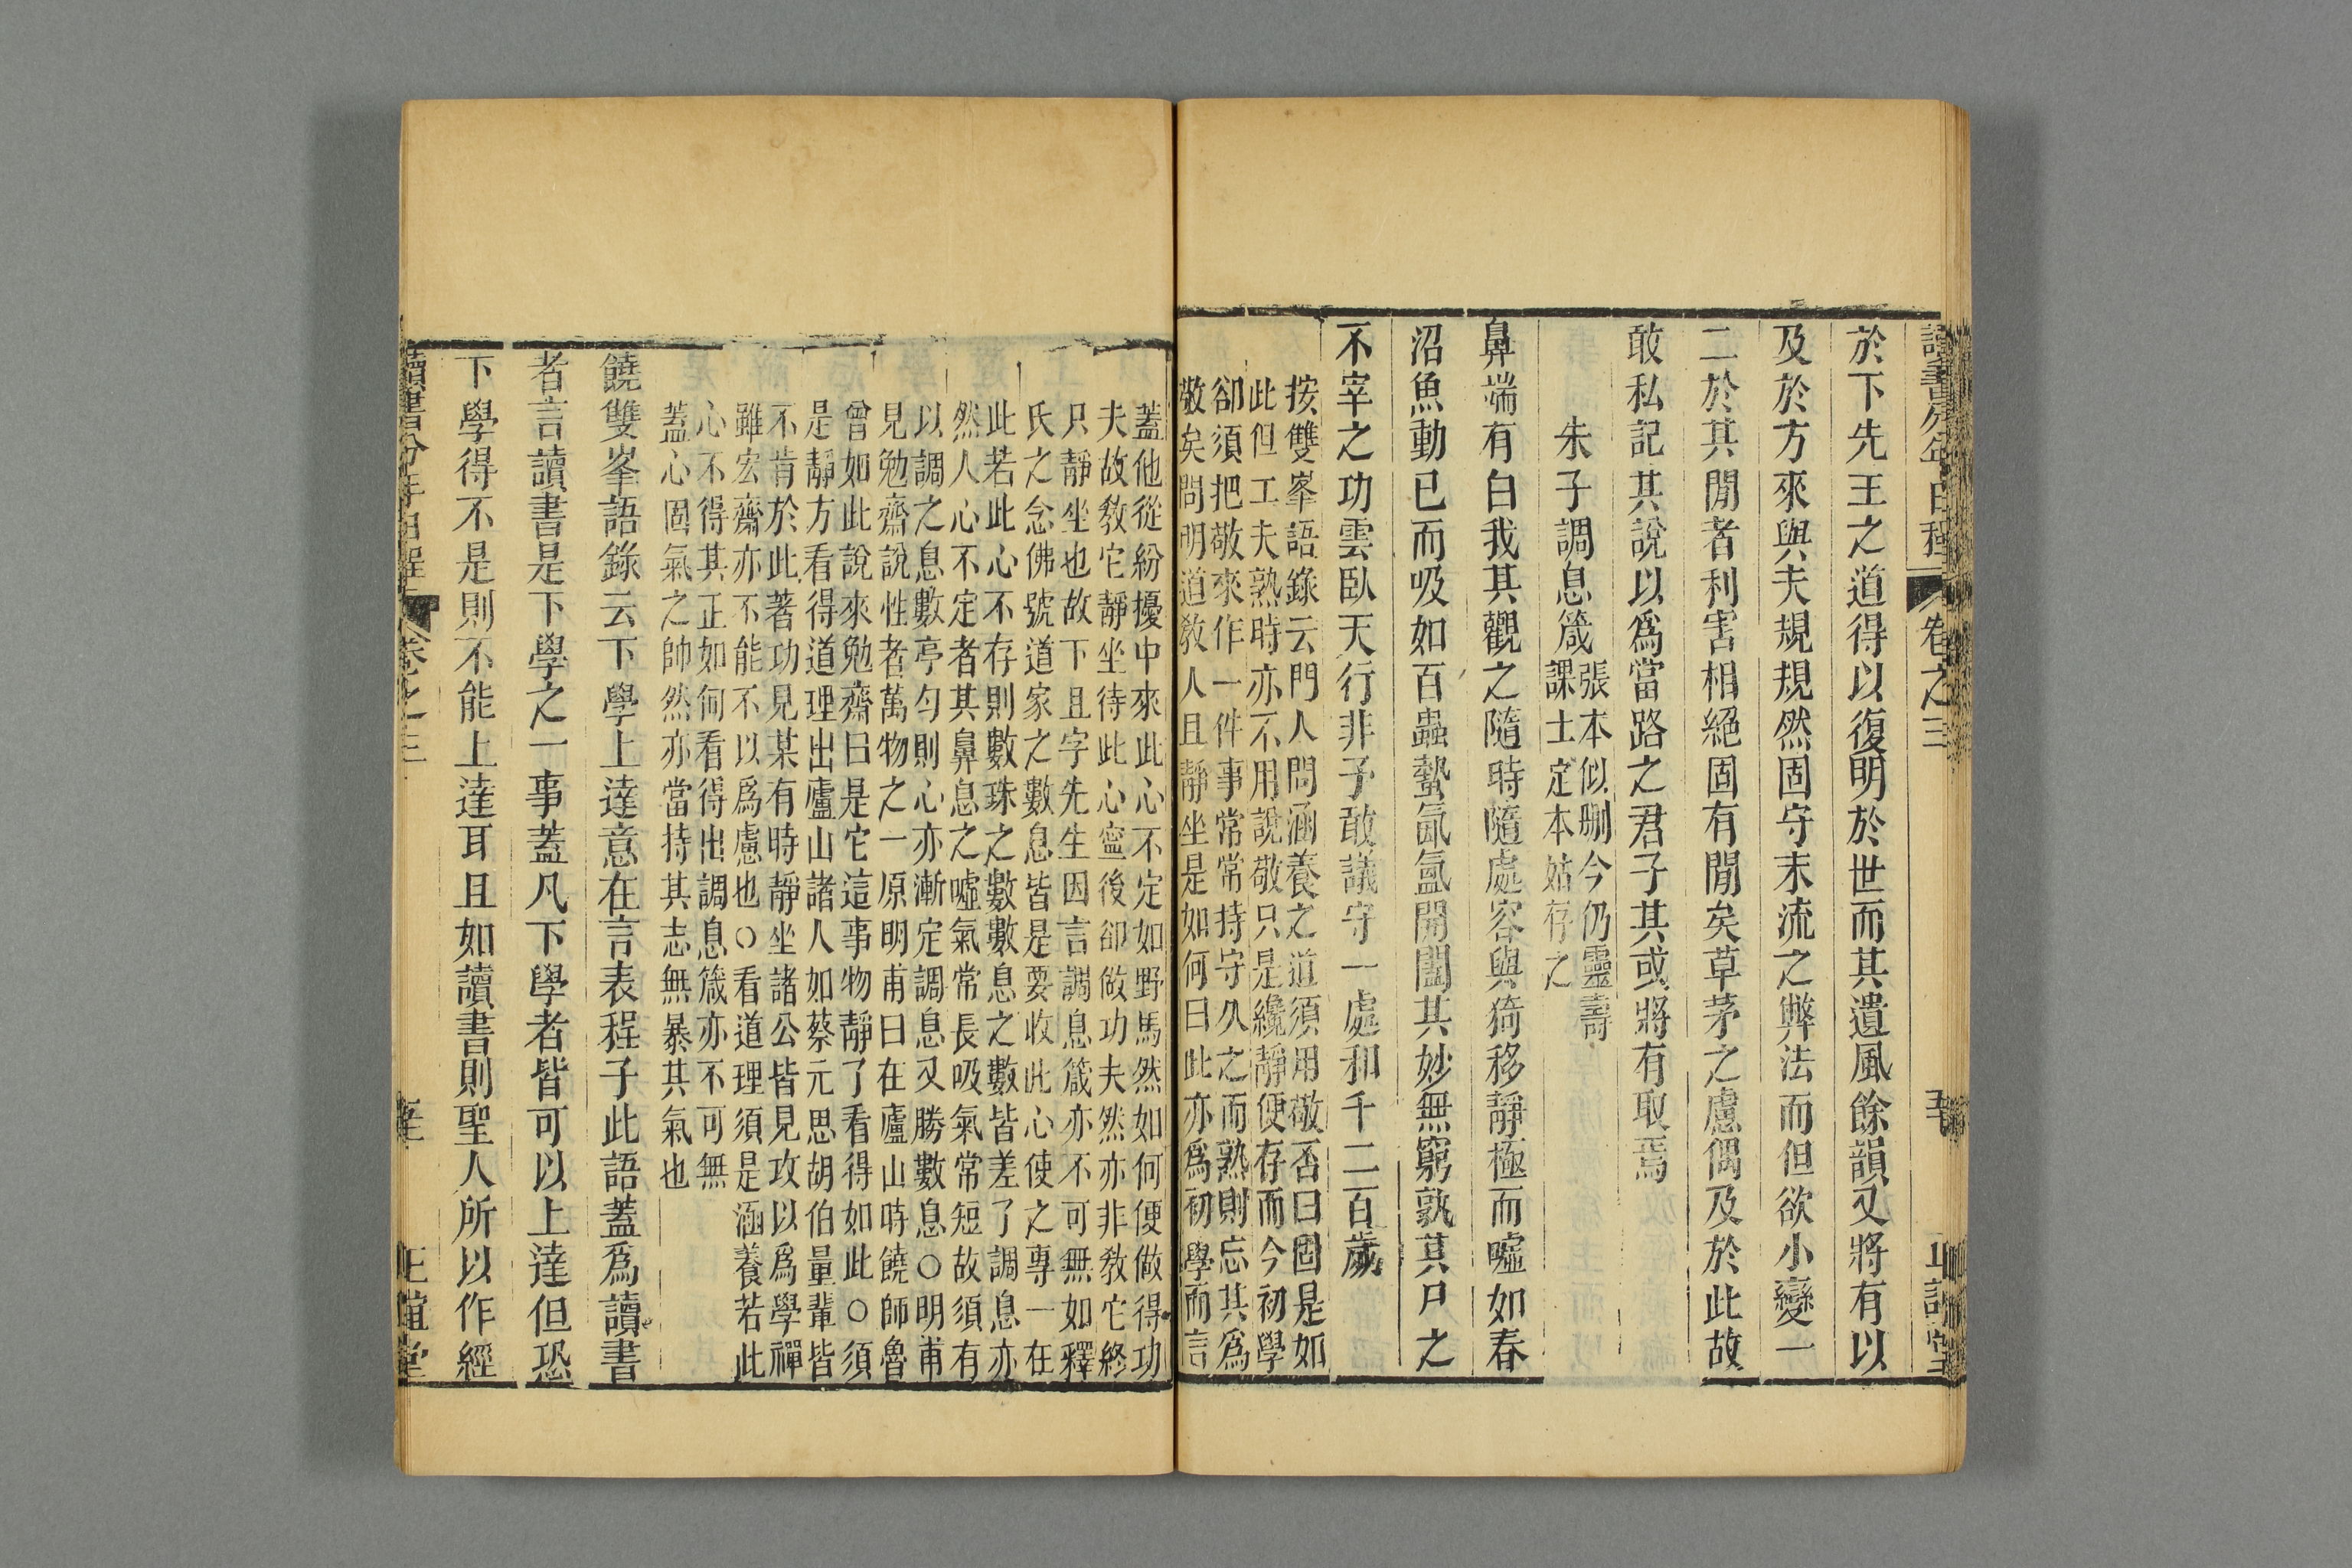 讀書分年日程 卷之三
於下先王之道得以復明於世而其遺風餘韻又將有以
及於方來與夫規規然固守末流之弊法而但欲小變一
二於其閒者利害相絕固有閒矣草茅之慮偶及於此故
敢私記其說以爲當路之君子其或將有取焉
朱子調息箴
張本似刪今仍靈壽
課士定本姑存之
鼻端有白我其觀之隨時隨處容與猗移靜極而噓如春
沼魚動已而吸如百蟲蟄氤氳開闔其妙無窮孰其尸之
不宰之功雲臥天行非予敢議守一處和千二百歲
按雙峯語錄云門人問涵養之道須用敬否曰固是如
此但工夫熟時亦不用說敬只是纔靜便存而今初學
卻須把敬來作一件事常常持守久之而熟則忘其爲
敬矣問明道敎人且靜坐是如何曰此亦爲初學而言
蓋他從紛擾中來此心不定如野馬然如何便做得功
夫故敎它靜坐待此心寧後卻做功夫然亦非敎它終
只靜坐也故下且字先生因言調息箴亦不可無如釋
氏之念佛號道家之數息皆是要收此心使之專一在
此若此心不存則數珠之數數息之數皆差了調息亦
然人心不定者其鼻息之噓氣常長吸氣常短故須有
以調之息數亭勻則心亦漸定調息又勝數息○明甫
見勉齋說性者萬物之一原明甫曰在廬山時饒師魯
曾如此說來勉齋曰是它這事物靜了看得如此○須
是靜方看得道理出廬山諸人如蔡元思胡伯量輩皆
不肯於此著功見某有時靜坐諸公皆見攻以爲學禪
雖宏齋亦不能不以爲慮也○看道理須是涵養若此
心不得其正如何看得出調息箴亦不可無
蓋心固氣之帥然亦當持其志無暴其氣也
饒雙峯語錄云下學上達意在言表程子此語蓋爲讀書
者言讀書是下學之一事蓋凡下學者皆可以上達但恐
下學得不是則不能上達耳且如讀書則聖人所以作經
讀書分年日程 卷之三 正誼堂